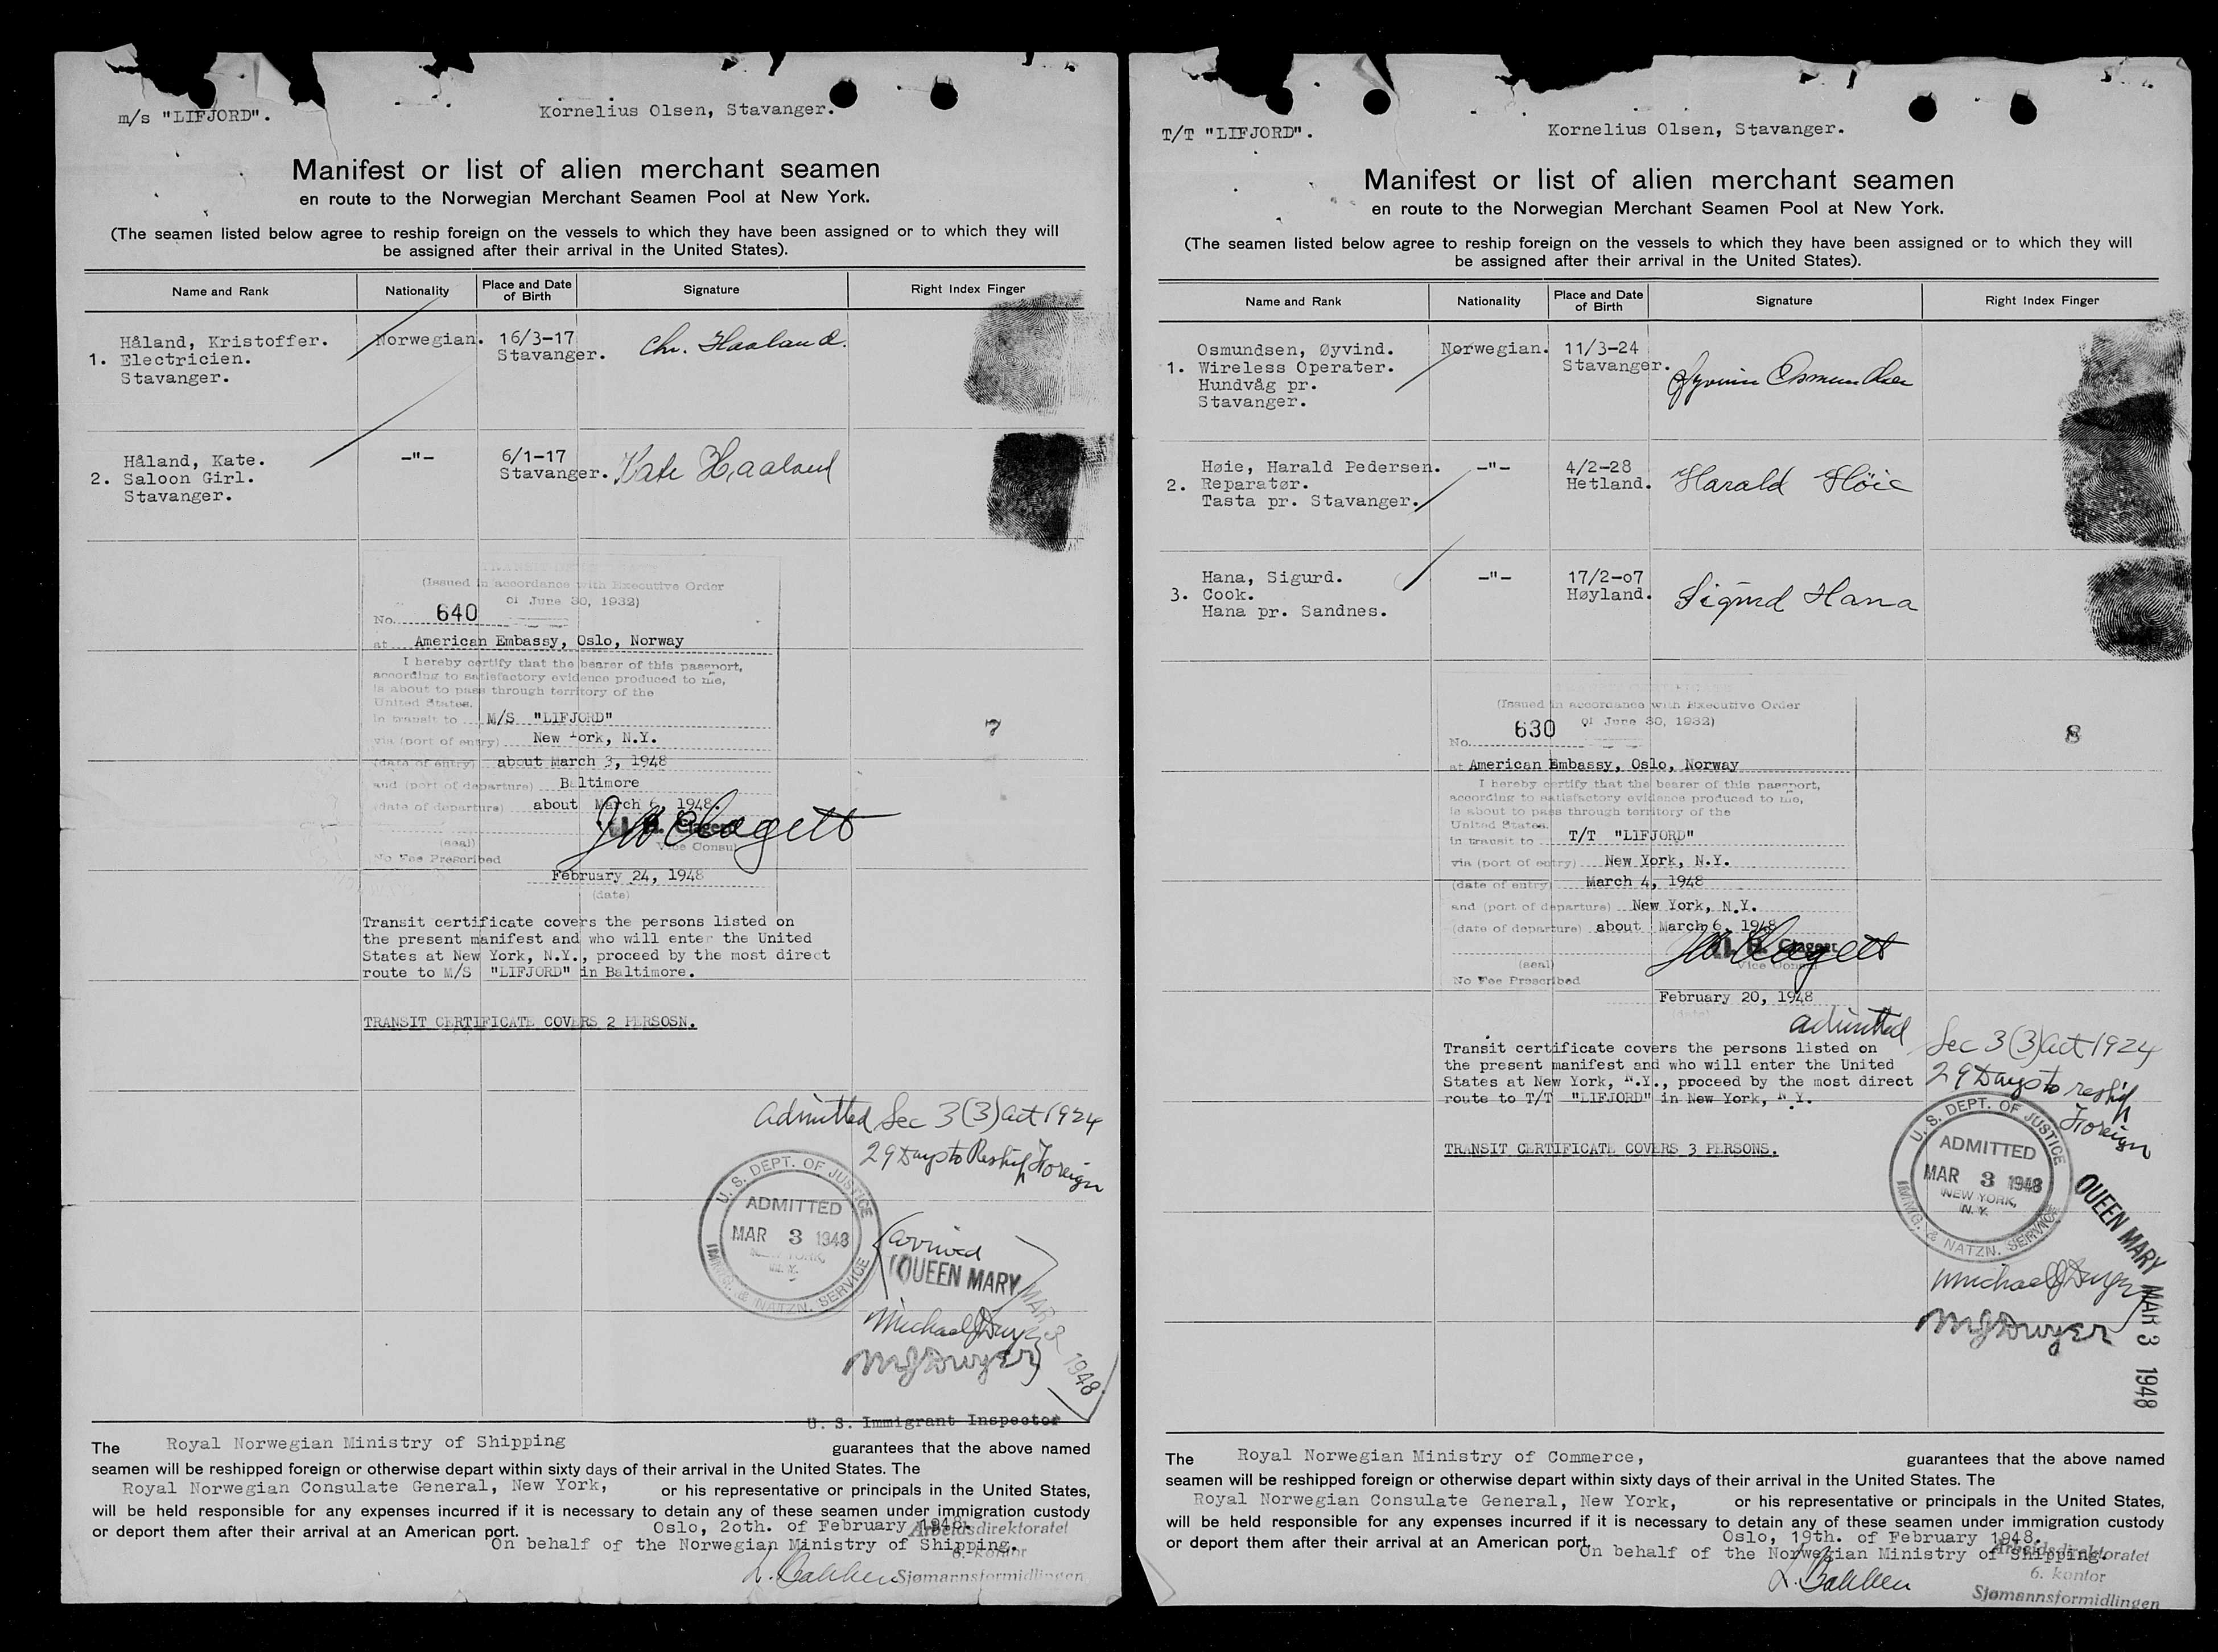 m/s "LIFJORD".
Kornelius Olsen, Stavanger.
Manifest or list of alien merchant seamen
en route to the Norwegian Merchant Seamen Pool at New York.
(The seamen listed below agree to reship foreign on the vessels to which they have been assigned or to which they will
be assigned after their arrival in the United States).
Name and Rank Nationality Place and Date of Birth Signature Right Index Finger
Håland, Kristoffer. Norwegian. 16/3-17 Chr. Haaland.
1. Electricien. Stavanger.
Stavanger.
Håland, Kate. -"- 6/1-17 Kate Haaland
2. Saloon Girl. Stavanger.
Stavanger.
(Issued in accordance with Executive Order
of June 30, 1932)
No. 640
at American Embassy, Oslo, Norway
I hereby certify that the bearer of this passport,
according to satisfactory evidence produced to me,
is about to pass through territory of the
United States.
in transit to M/S "LIFJORD"
7
via (port of entry) New York, N.Y.
(date of entry) about March 3, 1948
and (port of departure) Baltimore
(date of departure) about March 6, 1948.
J H Clagett
Vice Consul
(seal)
No Fee Prescribed
February 24, 1948
(date)
Transit certificate covers the persons listed on
the present manifest and who will enter the United
States at New York, N.Y., proceed by the most direct
route to M/S "LIFJORD" in Baltimore.
TRANSIT CERTIFICATE COVERS 2 PERSOSN.
Admitted Sec 3(3) Act 1924
29 Days to Reship Foreign
U. S. DEPT. OF JUSTICE
ADMITTED
MAR 3 1948
NEW YORK,
N. Y.
IMMG. & NATZN. SERVICE
(arrived
QUEEN MARY
MAR 3 1948
Michael J Dwyer
MJ Dwyer)
U. S. Immigrant Inspector
The Royal Norwegian Ministry of Shipping guarantees that the above named
seamen will be reshipped foreign or otherwise depart within sixty days of their arrival in the United States. The
Royal Norwegian Consulate General, New York, or his representative or principals in the United States,
will be held responsible for any expenses incurred if it is necessary to detain any of these seamen under immigration custody
or deport them after their arrival at an American port.
Oslo, 20th. of February 1948.
Arbeidsdirektoratet
On behalf of the Norwegian Ministry of Shipping.
6. kontor
L. Bakken
Sjømannsformidlingen
T/T "LIFJORD".
Kornelius Olsen, Stavanger.
Manifest or list of alien merchant seamen
en route to the Norwegian Merchant Seamen Pool at New York.
(The seamen listed below agree to reship foreign on the vessels to which they have been assigned or to which they will
be assigned after their arrival in the United States).
Name and Rank Nationality Place and Date of Birth Signature Right Index Finger
Osmundsen, Øyvind. Norwegian. 11/3-24 Øyvind Osmundsen
1. Wireless Operater. Stavanger.
Hundvåg pr.
Stavanger.
Høie, Harald Pedersen. -"- 4/2-28 Harald Höie
2. Reparatør. Hetland.
Tasta pr. Stavanger.
Hana, Sigurd. -"- 17/2-07 Sigurd Hana
3. Cook. Høyland.
Hana pr. Sandnes.
TRANSIT CERTIFICATE
(Issued in accordance with Executive Order
of June 30, 1932)
No. 630
8
at American Embassy, Oslo, Norway
I hereby certify that the bearer of this passport,
according to satisfactory evidence produced to me,
is about to pass through territory of the
United States.
in transit to T/T "LIFJORD"
via (port of entry) New York, N.Y.
(date of entry) March 4, 1948
and (port of departure) New York, N.Y.
(date of departure) about March 6, 1948
J H Clagett
Vice Consul
(seal)
No Fee Prescribed
February 20, 1948
(date)
Transit certificate covers the persons listed on
the present manifest and who will enter the United
States at New York, N.Y., proceed by the most direct
route to T/T "LIFJORD" in New York, N.Y.
TRANSIT CERTIFICATE COVERS 3 PERSONS.
admitted Sec 3(3) Act 1924
29 Days to reship
Foreign
U. S. DEPT. OF JUSTICE
ADMITTED
MAR 3 1948
NEW YORK,
N. Y.
IMMG. & NATZN. SERVICE
QUEEN MARY MAR 3 1948
Michael J Dwyer
MJ Dwyer
The Royal Norwegian Ministry of Commerce, guarantees that the above named
seamen will be reshipped foreign or otherwise depart within sixty days of their arrival in the United States. The
Royal Norwegian Consulate General, New York, or his representative or principals in the United States,
will be held responsible for any expenses incurred if it is necessary to detain any of these seamen under immigration custody
or deport them after their arrival at an American port.
Oslo, 19th. of February 1948.
On behalf of the Norwegian Ministry of Shipping.
Arbeidsdirektoratet
6. kontor
L. Bakken
Sjømannsformidlingen